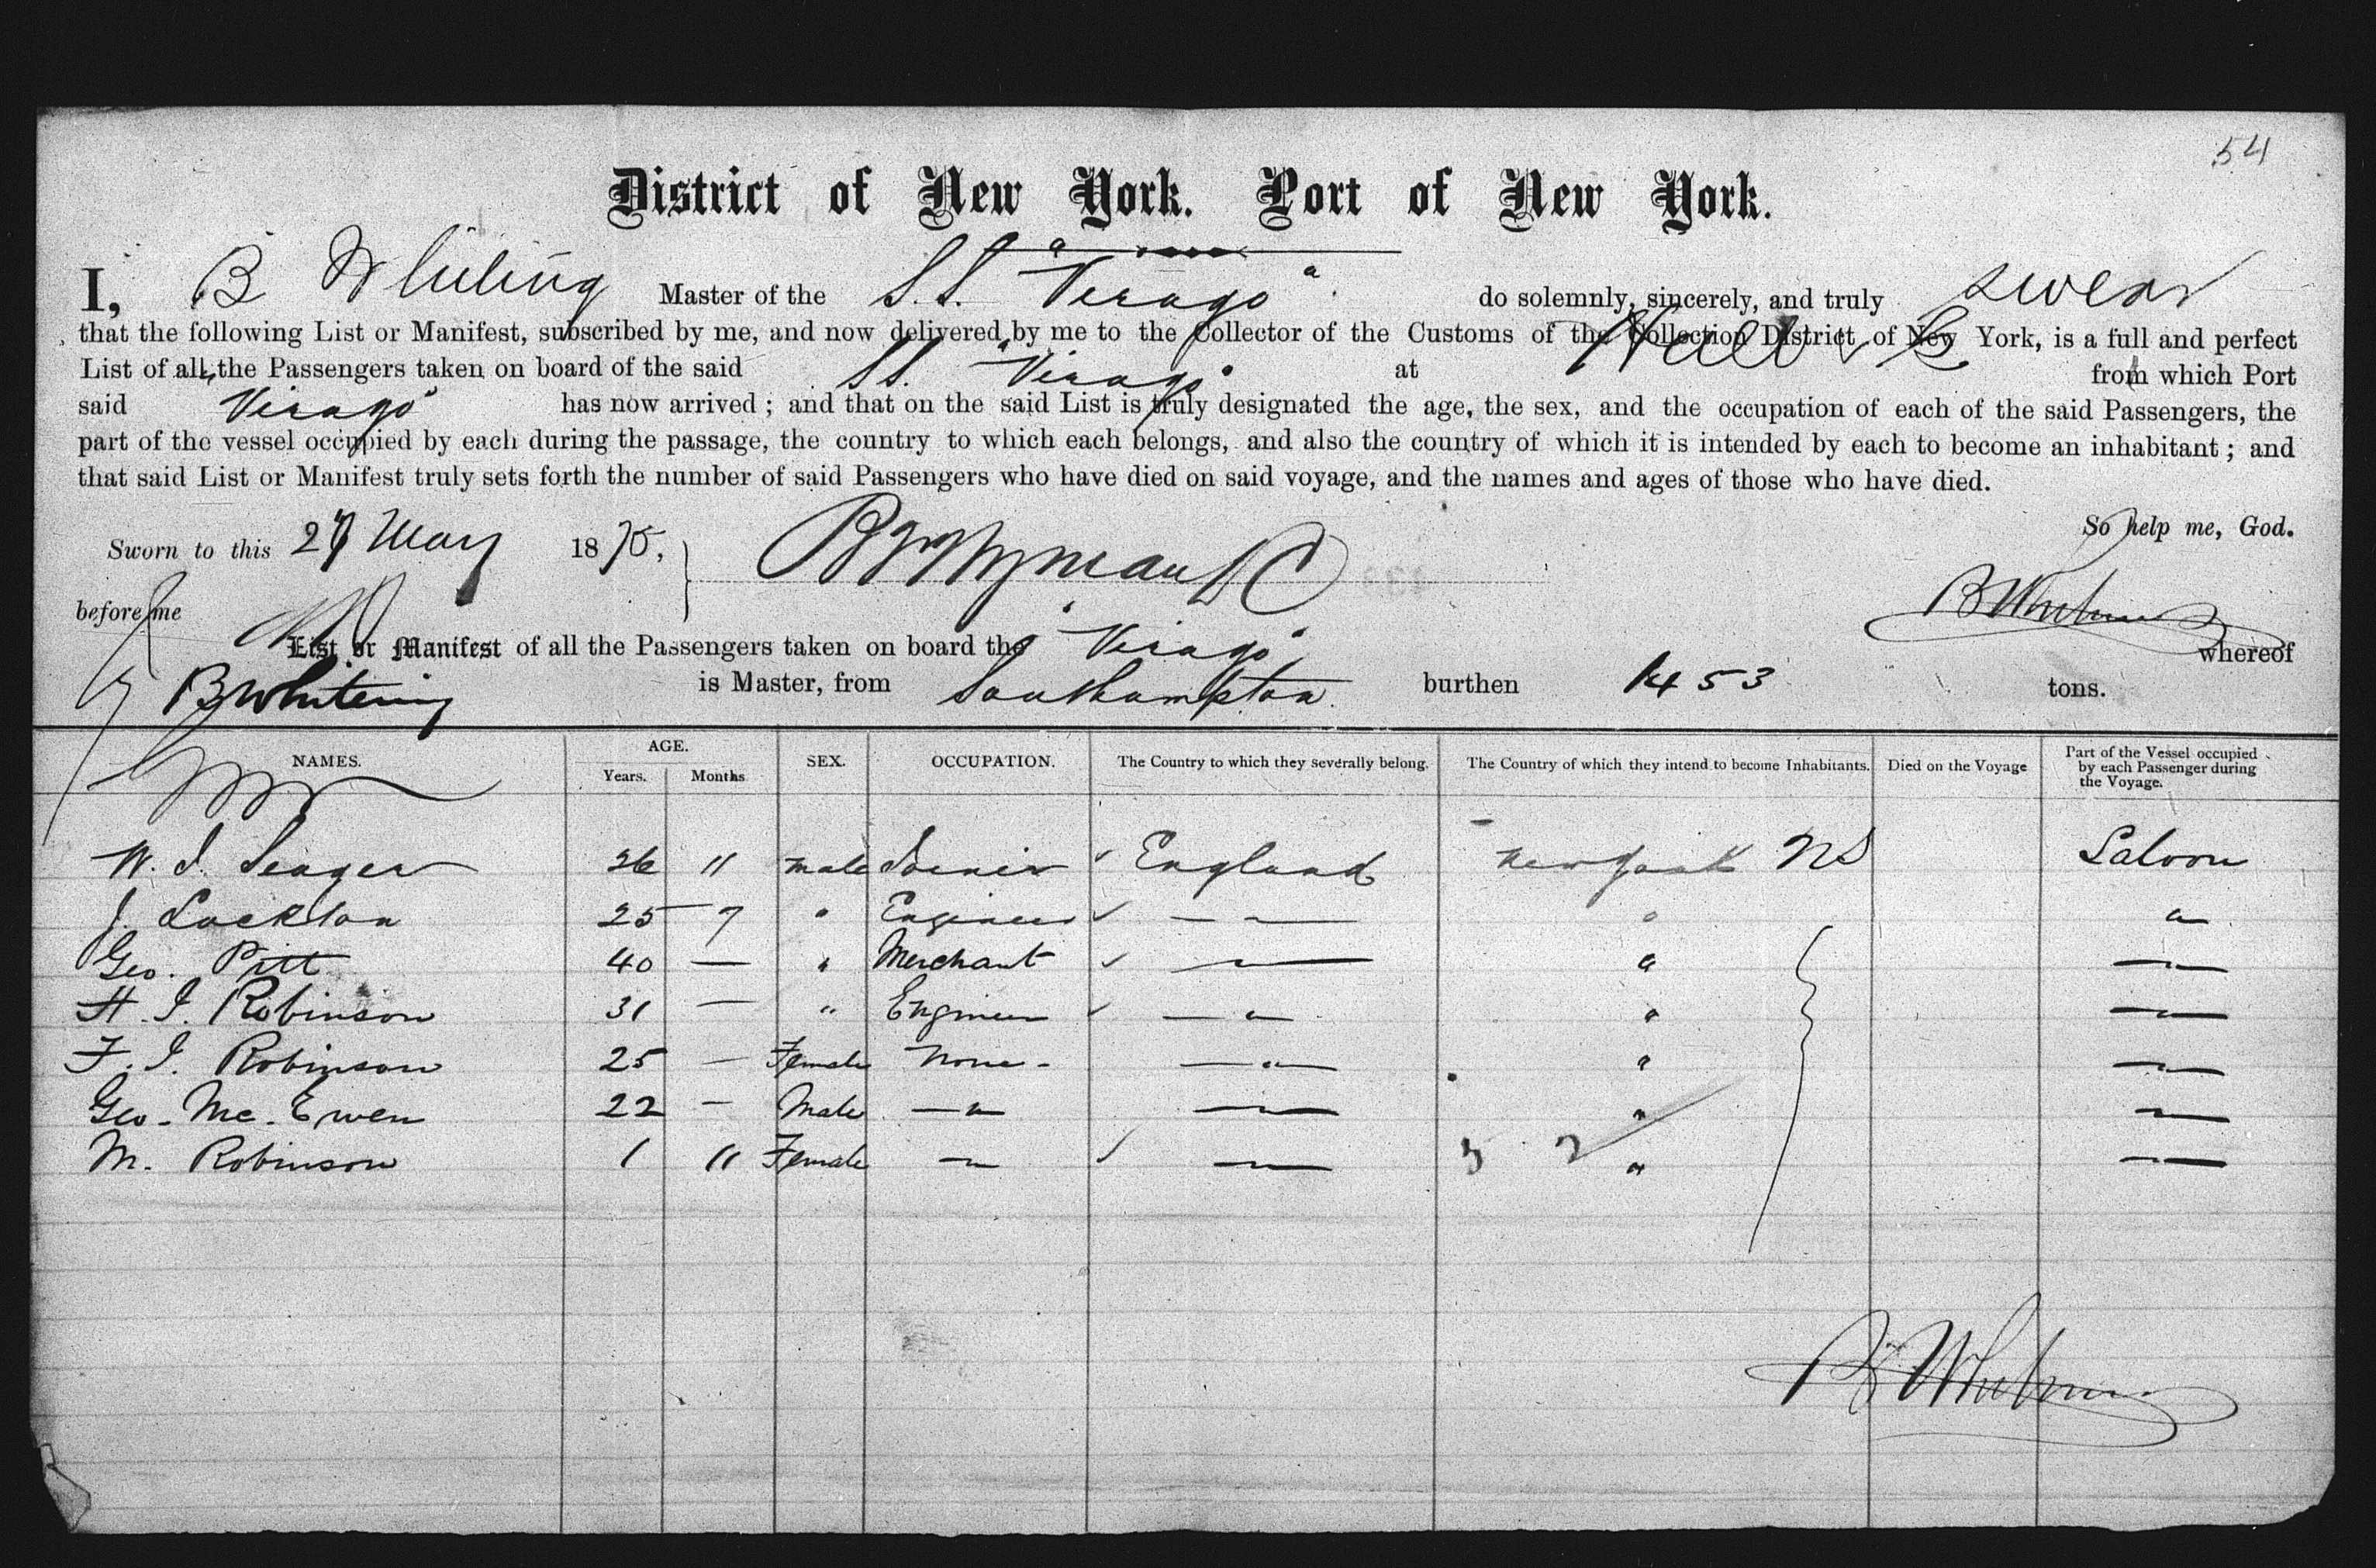 54
District of New York. Port of New York.
I, B Whiting Master of the S.S. "Virago" do solemnly, sincerely, and truly swear
that the following List or Manifest, subscribed by me, and now delivered by me to the Collector of the Customs of the Collection District of New York, is a full and perfect
List of all the Passengers taken on board of the said SS. "Virago" at Hull & from which Port
said Virago has now arrived; and that on the said List is truly designated the age, the sex, and the occupation of each of the said Passengers, the
part of the vessel occupied by each during the passage, the country to which each belongs, and also the country of which it is intended by each to become an inhabitant; and
that said List or Manifest truly sets forth the number of said Passengers who have died on said voyage, and the names and ages of those who have died.
So help me, God.
Sworn to this 27 May 1875,
before me
List or Manifest of all the Passengers taken on board the "Virago" whereof
B Whitering is Master, from Southampton burthen 1453 tons.
NAMES. AGE. Years. Months SEX. OCCUPATION. The Country to which they severally belong. The Country of which they intend to become Inhabitants. Died on the Voyage Part of the Vessel occupied by each Passenger during the Voyage.
W. J. Seager 26 " male England New York Saloon
J. Lockton 25 7 " Engineer — " — " "
Geo. Pitt 40 — " Merchant — " — " — " —
H. J. Robinson 31 — " Engineer — " — " — " —
F. J. Robinson 25 — Female None - — " — " — " —
Geo. Mc. Ewen 22 — Male — " — — " — " — " —
M. Robinson 1 11 Female — " — — " — " — " —
3 2